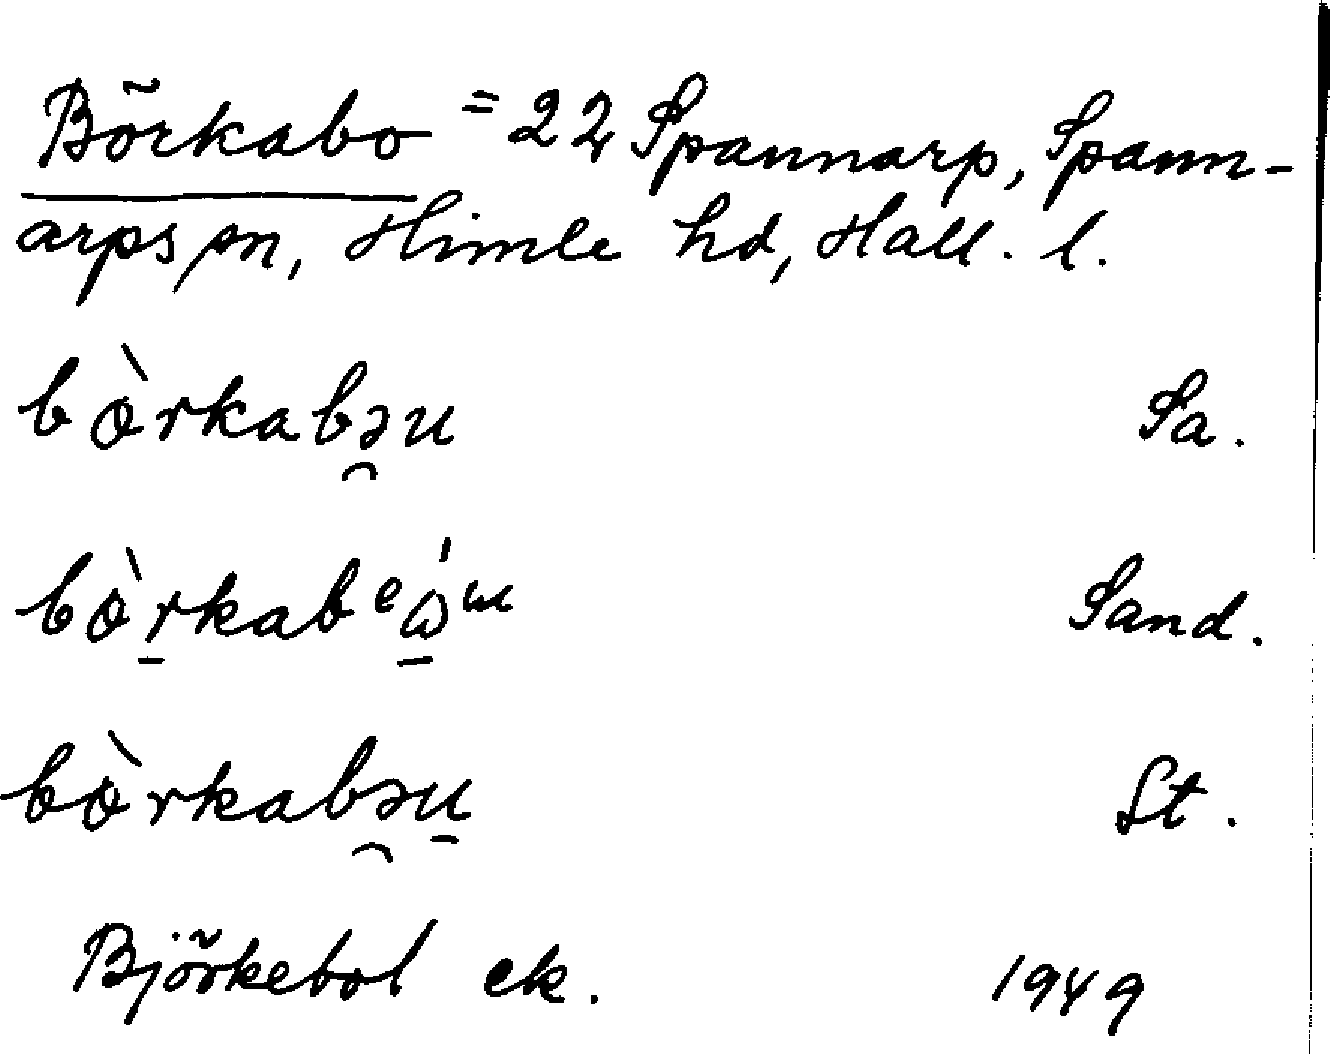 Börkabo = 22 Spannarp, Spann-
arps sn, Himle hd, Hall. l.
bòrkabə̯u Sa.
bò̱rkabᵉώ̱ᵚ Sand.
bòrkabə̯u̱ St.
Björkebol ek. 1949